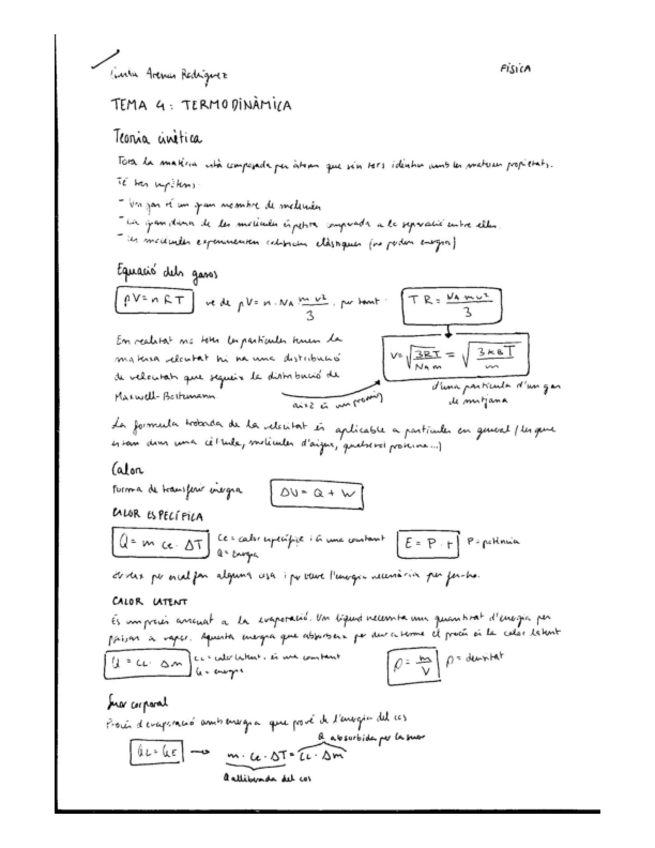 Arenas Rodríguez FÍSICA
TEMA 4: TERMODINÀMICA
Teoria cinètica
Tota la matèria està composada per àtoms que són tots idèntics amb les mateixes propietats.
Té tres hipòtesis:
- Un gas té un gran nombre de molècules
- La grandària de les molècules és petita comparada a la separació entre elles.
- Les molècules experimenten colisions elàstiques (no perden energia)
Equació dels gasos
pV = nRT ve de pV = n · NA m v² / 3 , per tant: TR = NA m v² / 3
En realitat no totes les partícules tenen la
mateixa velocitat hi ha una distribució
de velocitats que segueix la distribució de
Maxwell-Boltzmann
això és un promig
V = √(3RT / NA m) = √(3 kB T / m)
d'una partícula d'un gas
de mitjana
La formula trobada de la velocitat és aplicable a partícules en general (les que
estan dins una cèl·lula, molècules d'aigua, qualsevol proteïna...)
Calor
Forma de transferir energia ΔU = Q + W
CALOR ESPECÍFICA
Q = m ce · ΔT ce = calor específica i és una constant E = P · t P = potència
Q = energia
Serveix per escalfar alguna cosa i per treure l'energia necessària per fer-ho.
CALOR LATENT
És un procés associat a la evaporació. Un líquid necessita una quantitat d'energia per
passar a vapor. Aquesta energia que absorbeix per dur a terme el procés és la calor latent
Q = CL · Δm CL = calor latent, és una constant ρ = m / V ρ = densitat
Q = energia
Suor corporal
Procés d'evaporació amb energia que prové de l'energia del cos
Q absorbida per la suor
QL = QE → m · Ce · ΔT = CL · Δm
Q alliberada del cos